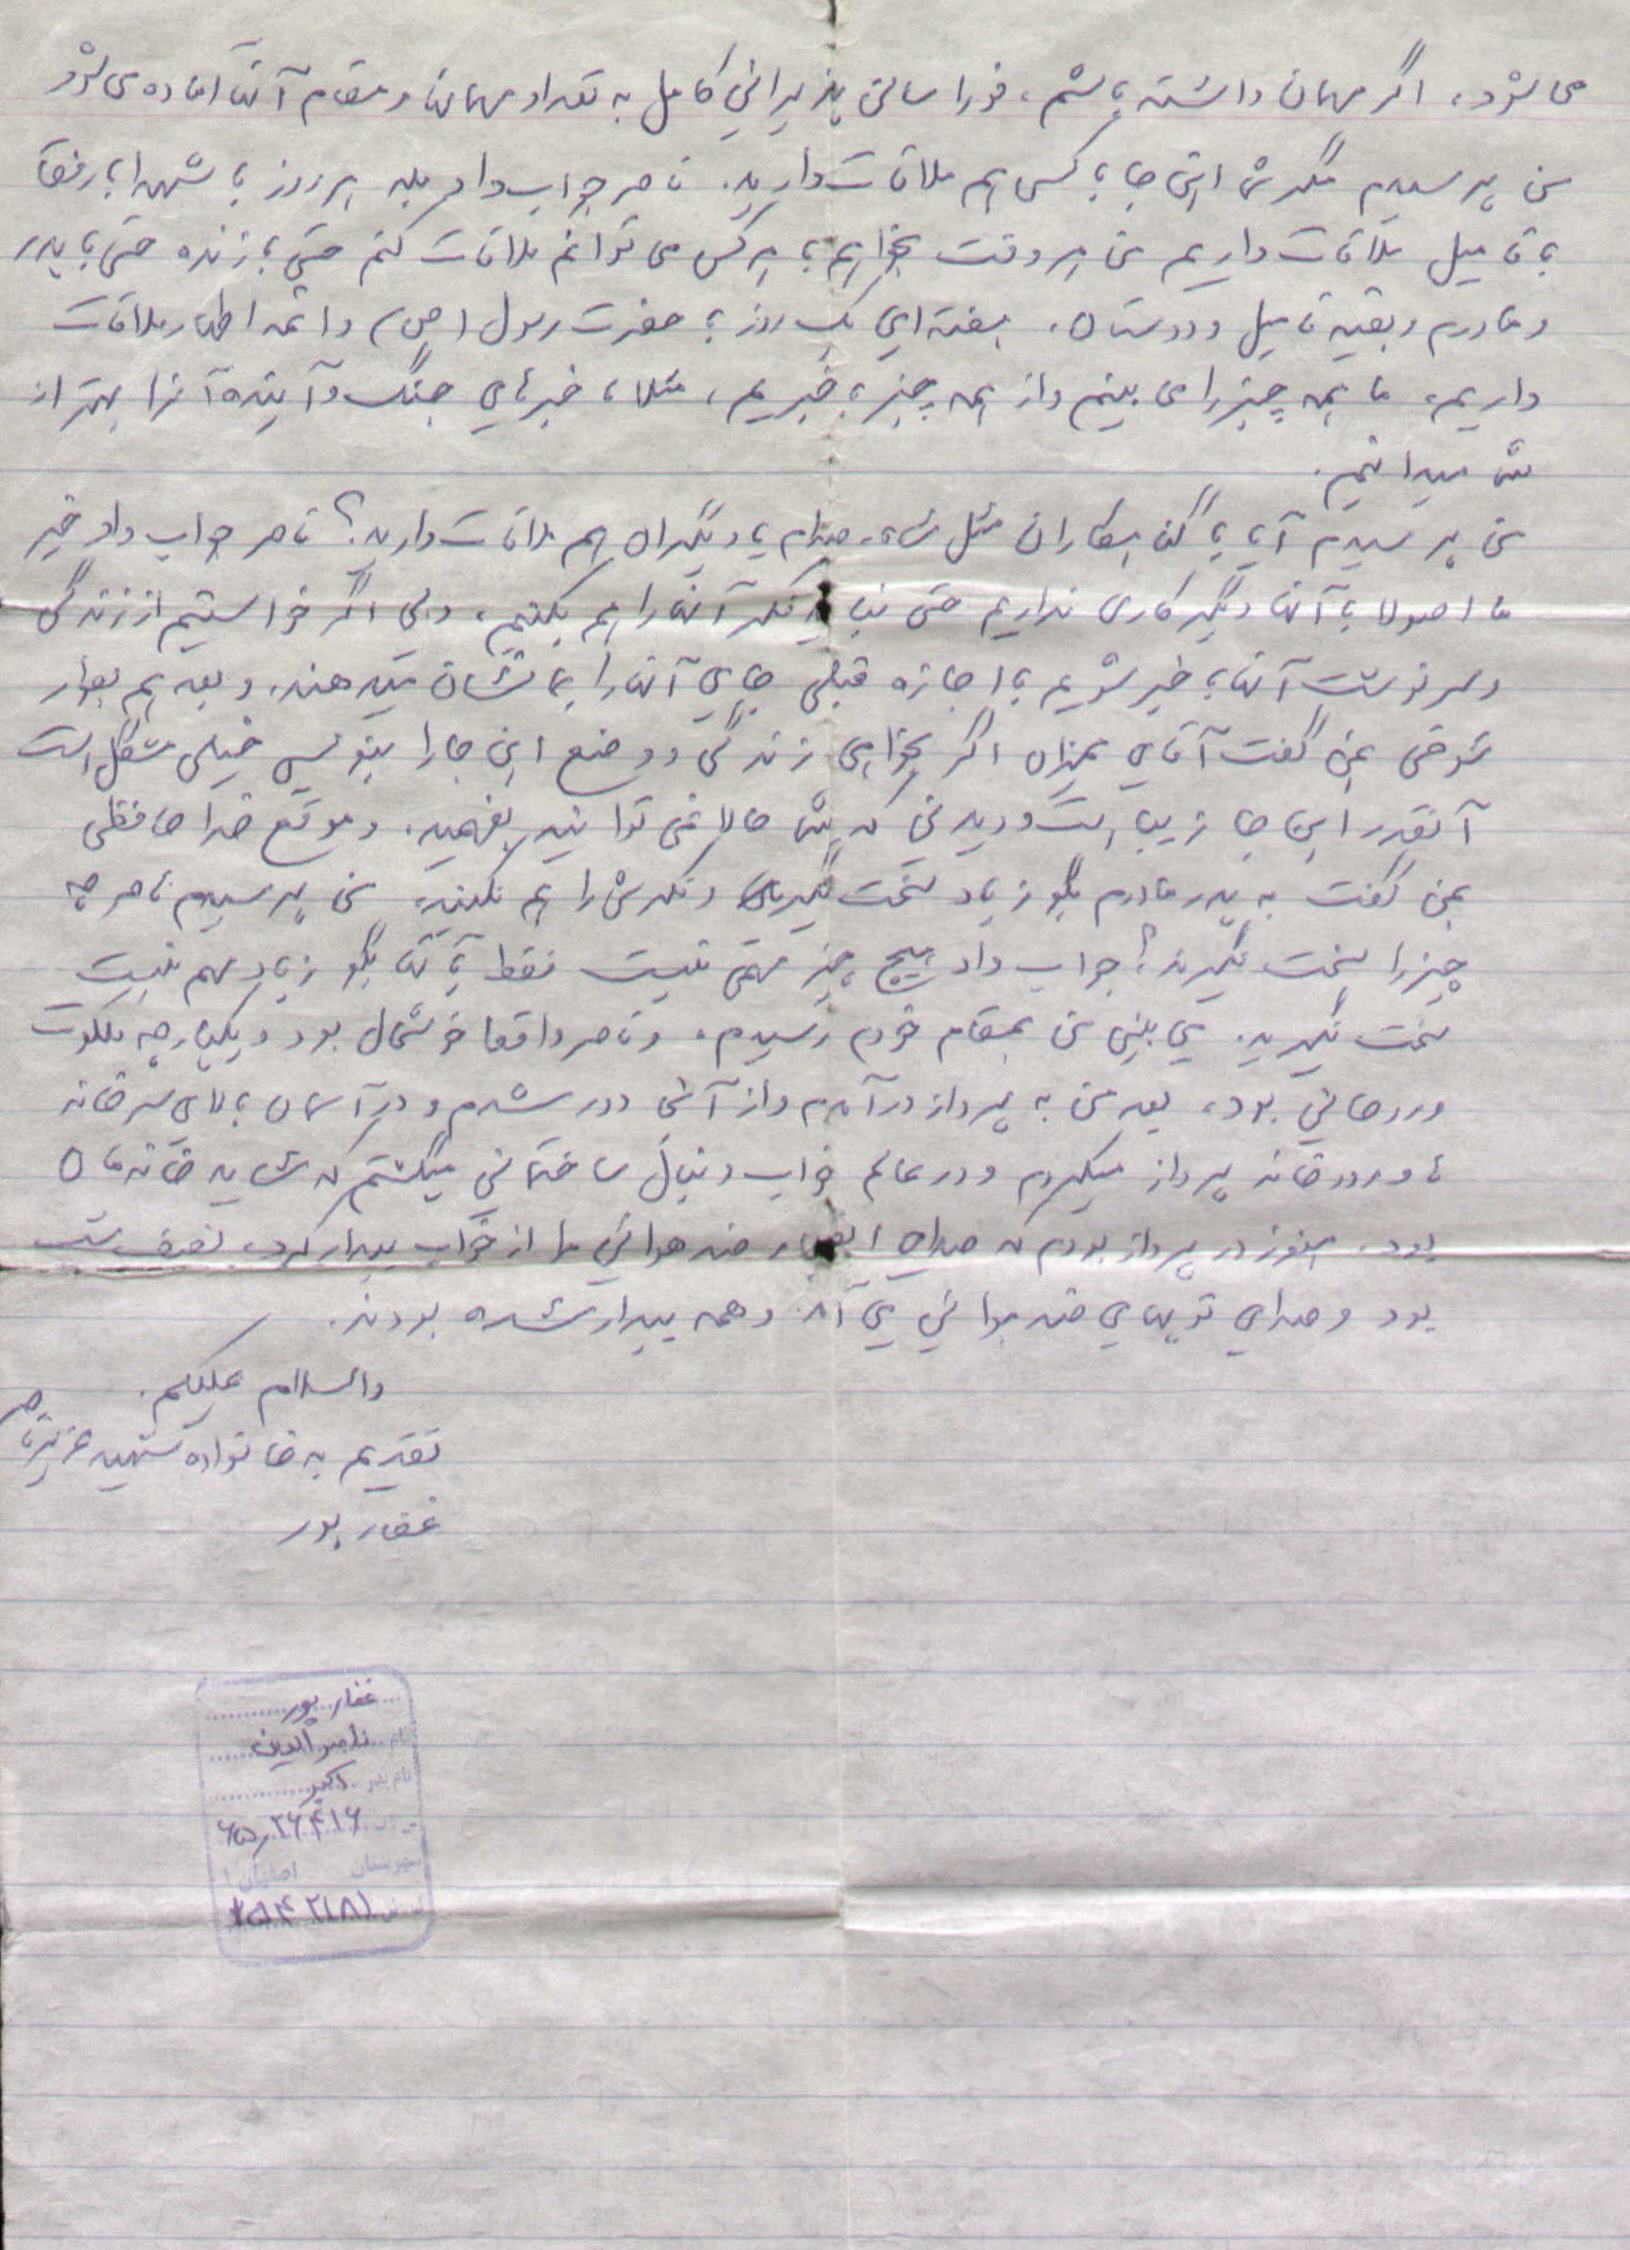 می شود، اگر مهمان داشته باشم، فورا سالن پذیرائی کامل به تعداد مهمانها و مقام آنها آماده می شود
من پرسیدم مگر شما این جا با کسی هم ملاقات دارید. ناصر جواب داد بله هر روز با شهدا با رفقا
با فامیل ملاقات داریم من هر وقت بخواهم با هر کس می توانم ملاقات کنم حتی با زنده حتی با پدر
و مادرم و بقیه فامیل و دوستان. هفته ای یک روز با حضرت رسول (ص) و ائمه اطهار ملاقات
داریم، ما همه چیز را می بینیم و از همه چیز با خبریم، مثلا، خبرهای جنگ و آینده آنرا بهتر از
شما میدانیم.
من پرسیدم آیا با گناهکاران مثل شاه. صدام یا دیگران هم ملاقات دارید؟ ناصر جواب داد خیر
ما اصولا با آنها دیگر کاری نداریم حتی نباید فکر آنها را هم بکنیم، ولی اگر خواستیم از زندگی
و سرنوشت آنها با خبر شویم با اجازه قبلی جای آنها را بما نشان میدهند. و بعد هم بطور
شوخی بمن گفت آقای اگر بخواهی زندگی و وضع این جا را بنویسی خیلی مشکل است
آنقدر این جا زیبا است و دیدنی که شما حالا نمی توانید بفهمید. و موقع خدا حافظی
بمن گفت به پدر مادرم بگو زیاد سخت نگیرند و فکرش را هم نکنید، من پرسیدم ناصر چه
چیز را سخت نگیرند؟ جواب داد هیچ چیز مهمی نیست فقط با آنها بگو زیاد مهم نیست
سخت نگیرید. می بینی من بمقام خودم رسیدم. و ناصر واقعا خوشحال بود و یکپارچه ملکوت
و روحانی بود، بعد من به پرواز در آمدم و از آنها دور شدم و در آسمان بالای سر خانه
ها و رودخانه پرواز میکردم و در عالم خواب دنبال ساختمانی میگشتم که شاید خانه مان
بود. هنوز در پرواز بودم که صدای انفجار ضد هوائی ما از خواب بیدار کرد، نصف شب
بود و صدای توپهای ضد هوائی می آمد و همه بیدار شده بودند.
والسلام علیکم.
تقدیم به خانواده شهید عزیز ناصر
غفار پور
غفار پور
نام ناصرالدین
نام پدر اکبر
۶۵٫۲۶۴۱۶
شهرستان اصفهان ۱